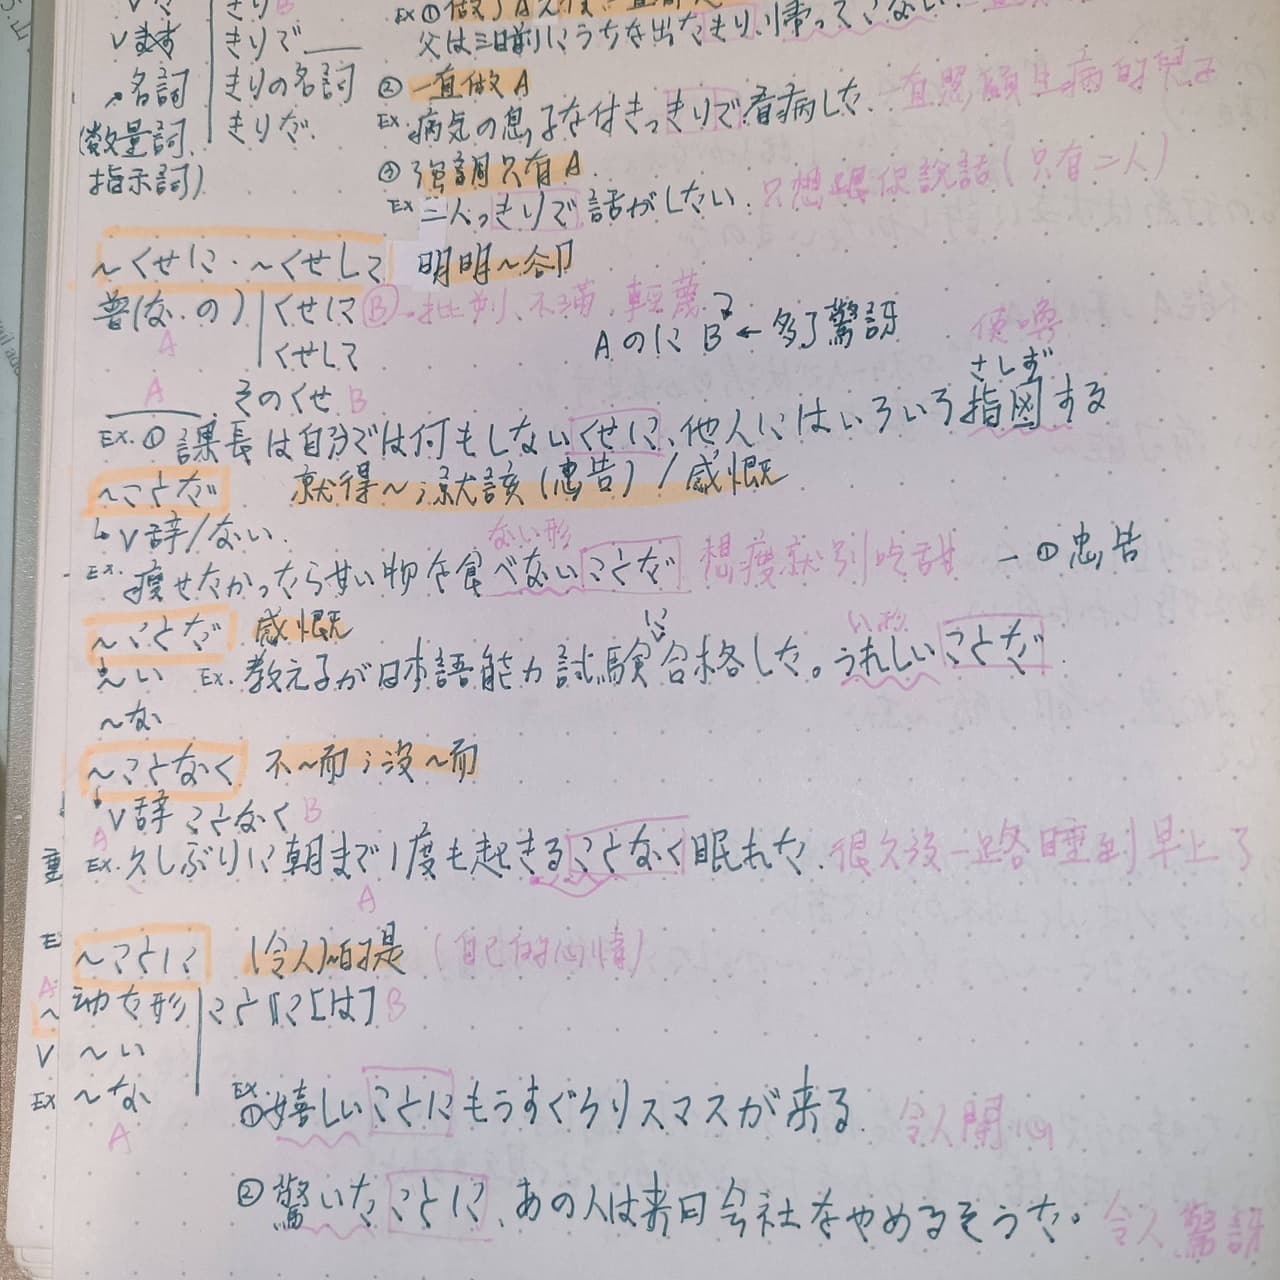 きりB
Vます きりで＿＿
父は三日前にうちを出たきり、帰ってこない。
名詞 きりの名詞
② 一直做A
(数量詞 きりだ。
Ex. 病気の息子を付きっきりで看病した。 一直照顧生病的兒子
指示詞)
③ 強調只有A
Ex 二人っきりで話がしたい。只想跟你說話(只有二人)
～くせに・～くせして 明明～卻
普(な、の) くせに B 批判、不滿、輕蔑
A くせして
AのにB ← 多了驚訝
A そのくせ B
使喚
さしず
Ex. ① 課長は自分では何もしないくせに、他人にはいろいろ指図する
～ことだ 就得～;就該(忠告)/感慨
↳V辞/ない。
ない形
Ex. 痩せたかったら甘い物を食べないことだ 想瘦就別吃甜 → ①忠告
～ことだ 感慨
に い形
～い Ex. 教え子が日本語能力試験合格した。うれしいことだ
～な
～ことなく 不～而;沒～而
V辞ことなく B
A
重
Ex. 久しぶりに朝まで1度も起きることなく眠れた。很久沒一路睡到早上了
A
～ことに (令人)～的是 (自己的心情)
動た形 ことに[は] B
～い
～な
A
Ex ① 嬉しいことにもうすぐクリスマスが来る 令人開心
② 驚いたことに、あの人は来日会社をやめるそうだ。 令人驚訝